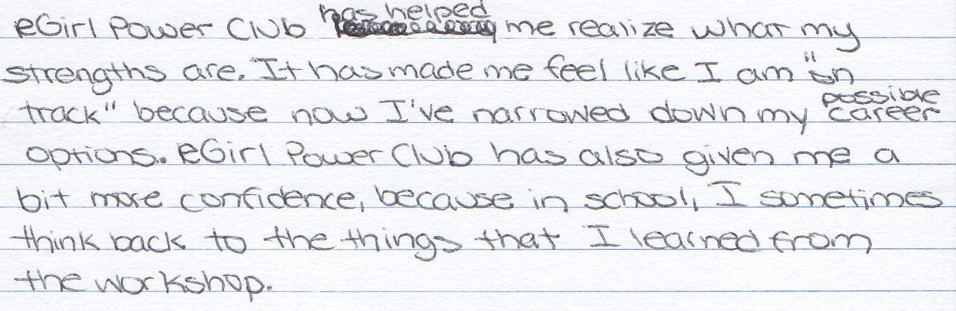 eGirl Power Club has helped me realize what my
strengths are. It has made me feel like I am "on
track" because now I've narrowed down my possible career
options. eGirl Power Club has also given me a
bit more confidence, because in school, I sometimes
think back to the things that I learned from
the workshop.